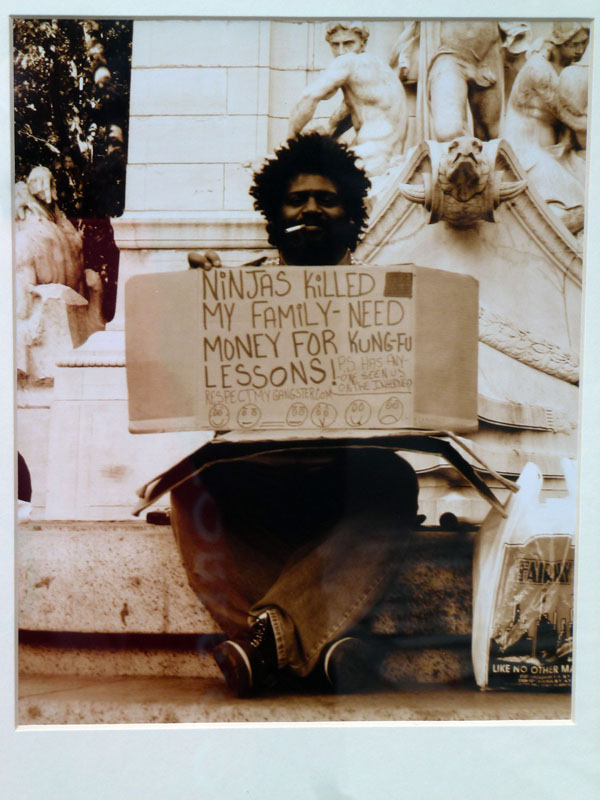 NiNJAS KiLLED
MY FAMILY- NEED
MONEY FOR KUNG-FU
LESSONS!
P.S. HAS ANY-
ONE SEEN US
ON THE
RESPECTMYGANGSTER.COM
FAIRWAY
LIKE NO OTHER MA